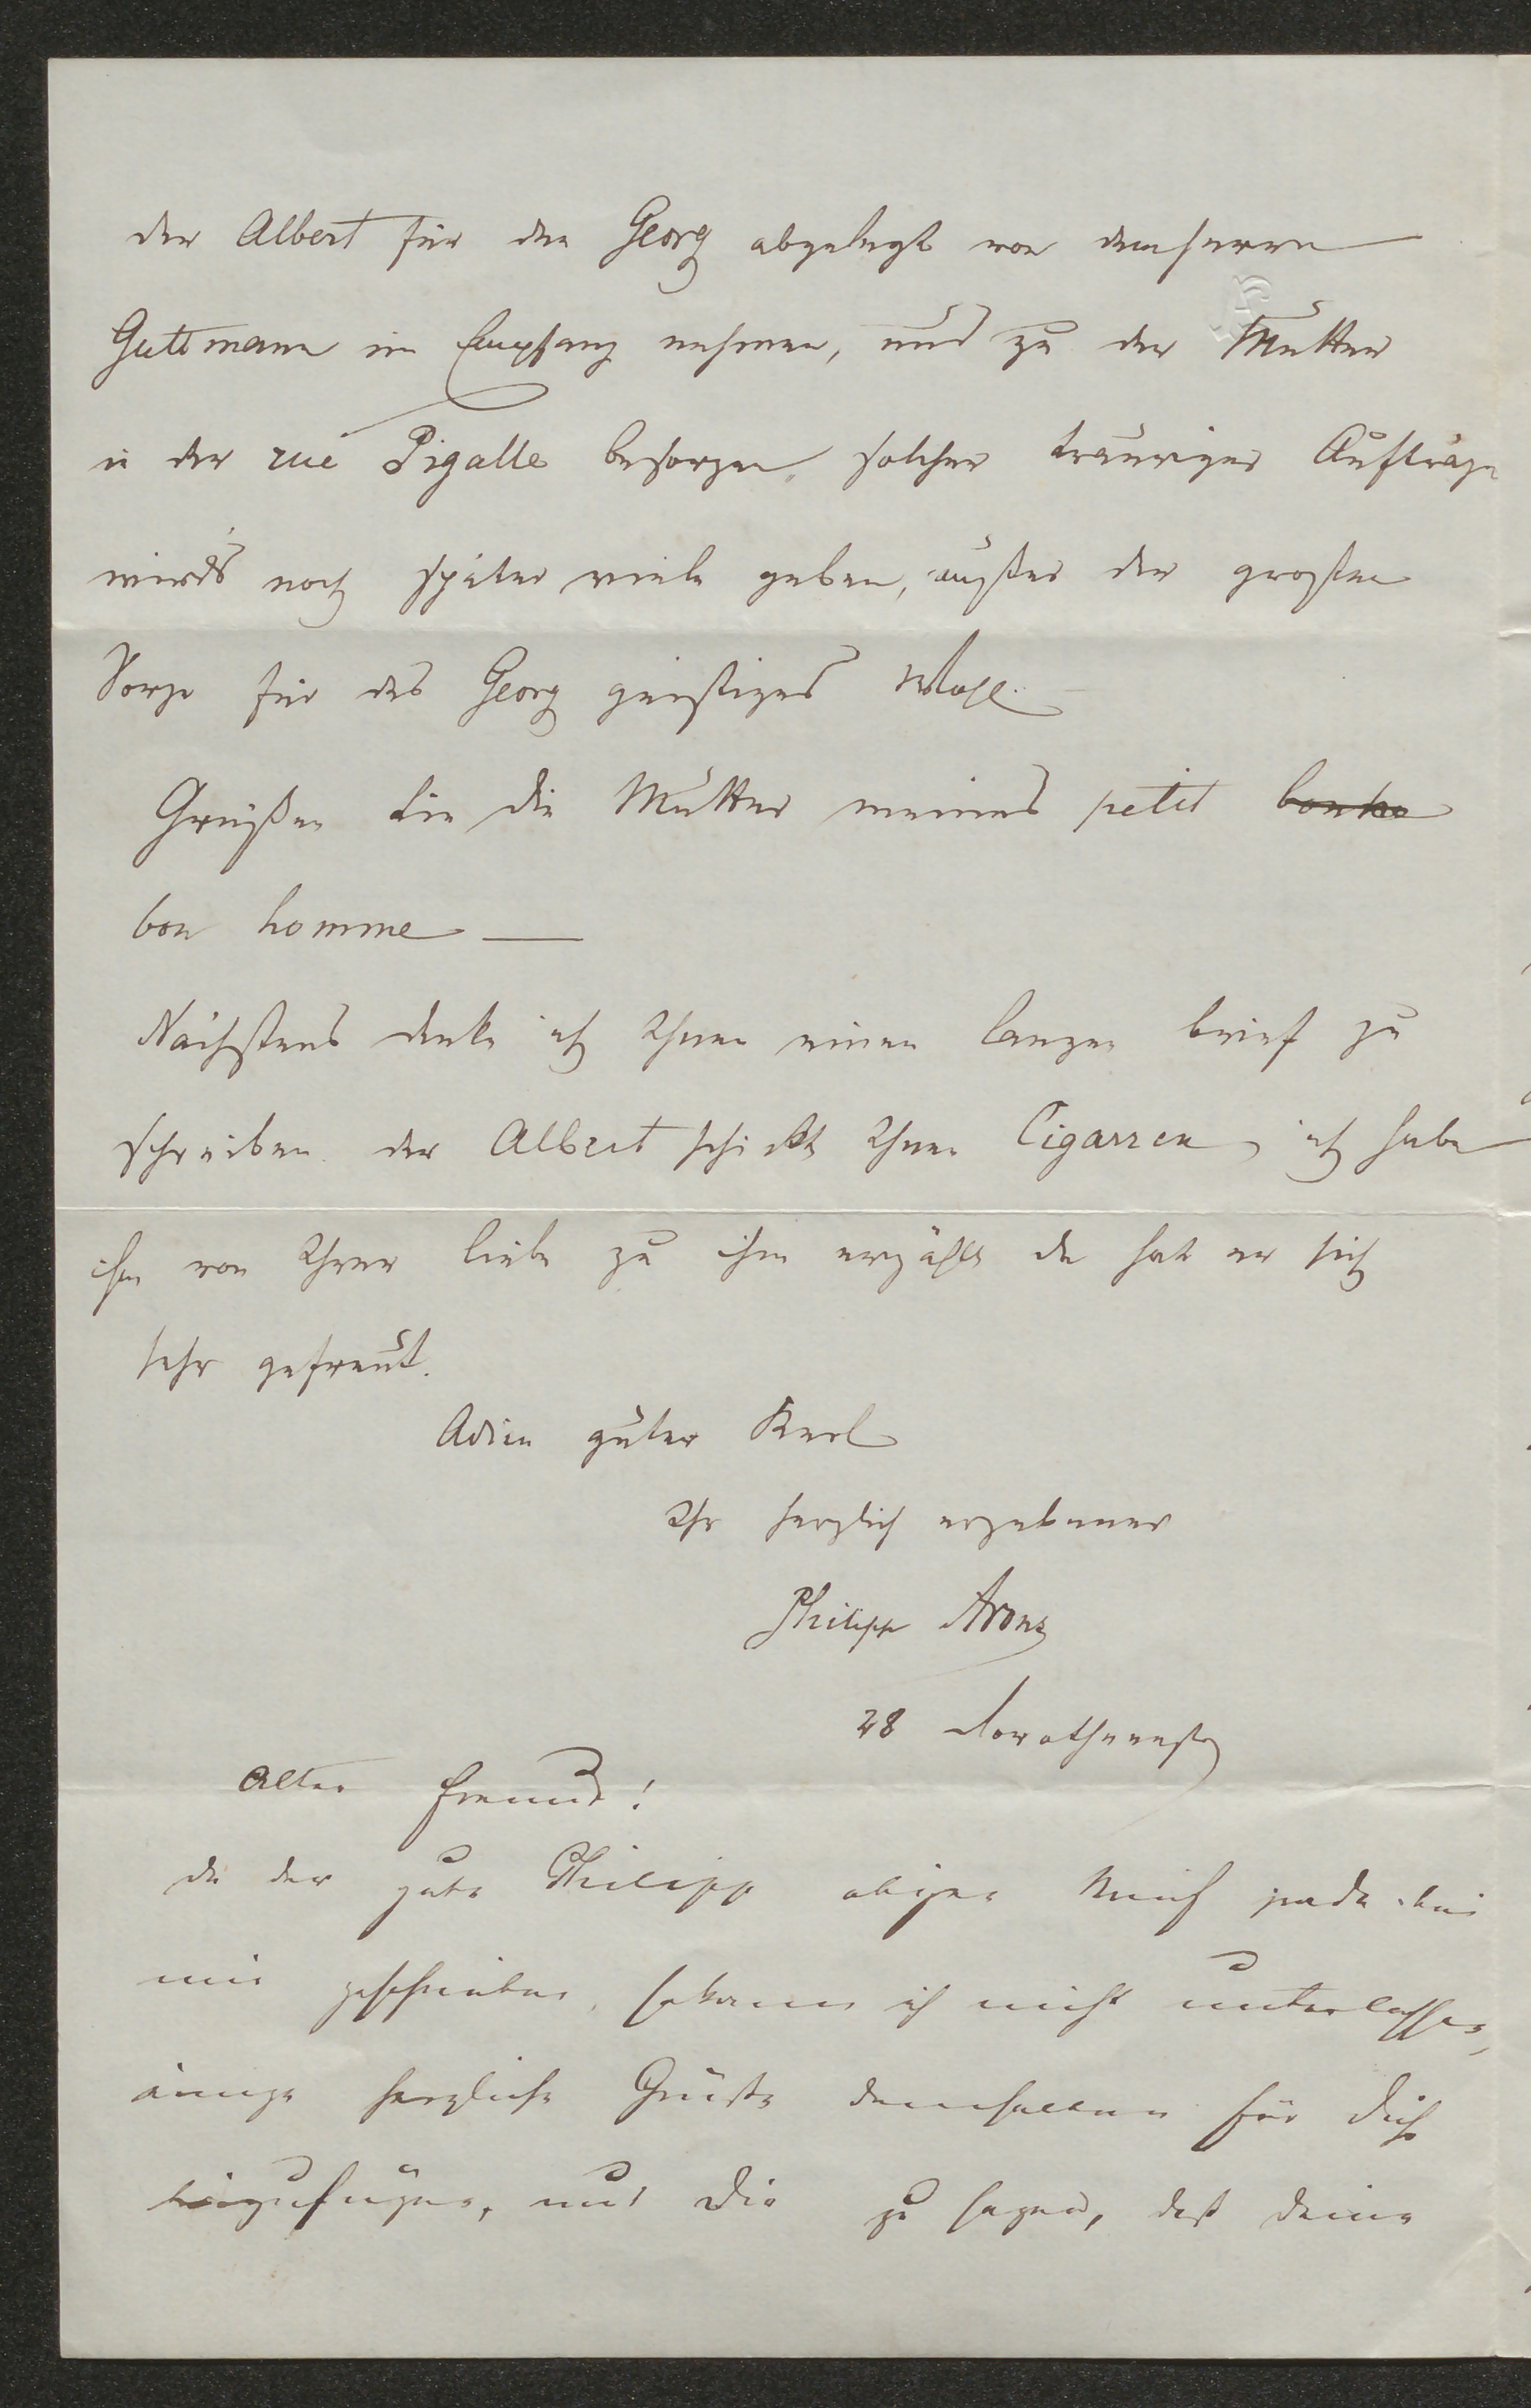 der Albert für den Georg abgelegt von dem Herrn
Guttmann in Empfang nehmen, und zu der Mutter
in der rue Pigalle besorgen, solcher trauriger Aufträge
wirds noch später viele geben, außer der großen
Sorge für des Georg geistiges Wohl.
Grüßen Sie die Mutter meines petit
bon homme —
Nächstens denke ich Ihnen einen langen brief zu
schreiben der Albert schickt Ihnen Cigarren, ich habe
ihm von Ihrer liebe zu ihm erzählt da hat er sich
sehr gefreut.
Adieu guter Kerl
Ihr herzlich ergebener
Philipp Arons
28 Dorotheenstr
Alter Freund!
da der gute Philipp obigen Brief grade bei
mir geschrieben, so kann ich nicht unterlassen,
einige herzliche Grüße demselben für Dich
beizufügen, und Dir zu sagen, daß deine